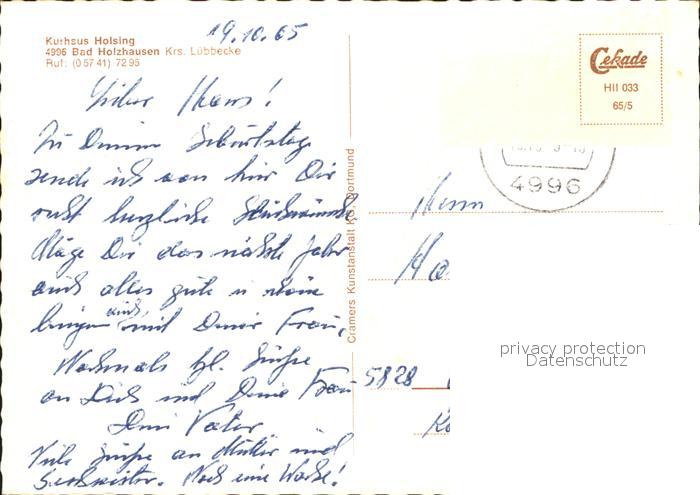 19.10.65
Kurhsus Holsing
4996 Bad Holzhausen Krs. Lübbecke
Ruf: (0 57 41) 72 95
Lieber Hans!
Zu Deinem Geburtstage
sende ich von hier Dir
recht herzliche Glückwünsche
Möge Dir das nächste Jahr
auch alles gute u. schöne
bringen auch mit Deiner Frau,
Nochmals hzl. Grüße
an Dich und Deine Frau
Dein Vater
Viele Grüße an Mutter und
Geschwister. Noch eine Woche!
Cramers Kunstanstalt KG, Dortmund
Cekade
HII 033
65/5
4996
Herrn
Ha
5828
privacy protection
Datenschutz